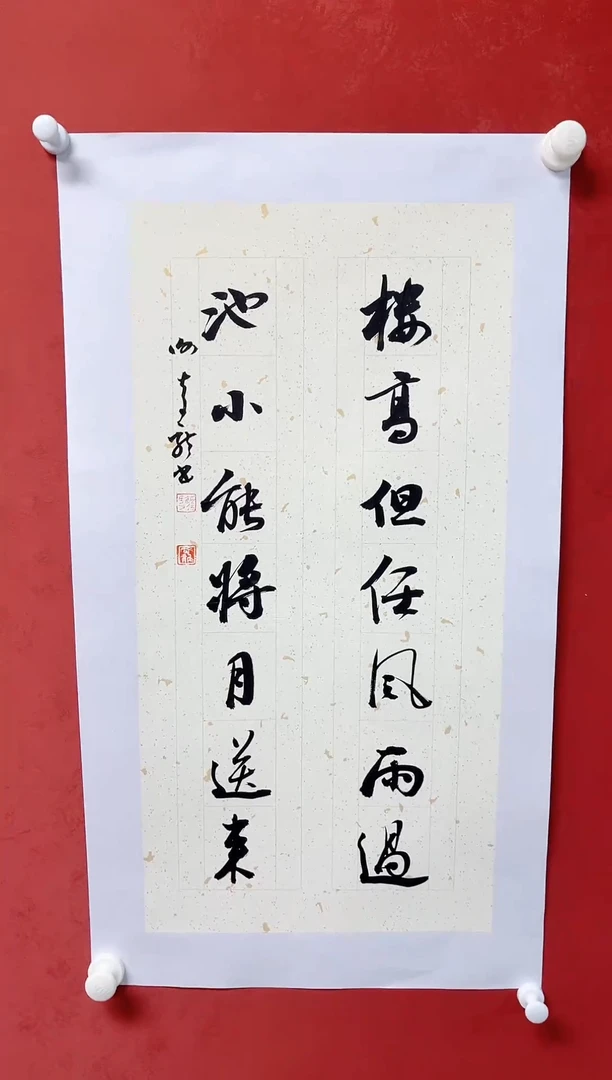 楼高但任风雨過
池小能將月送来